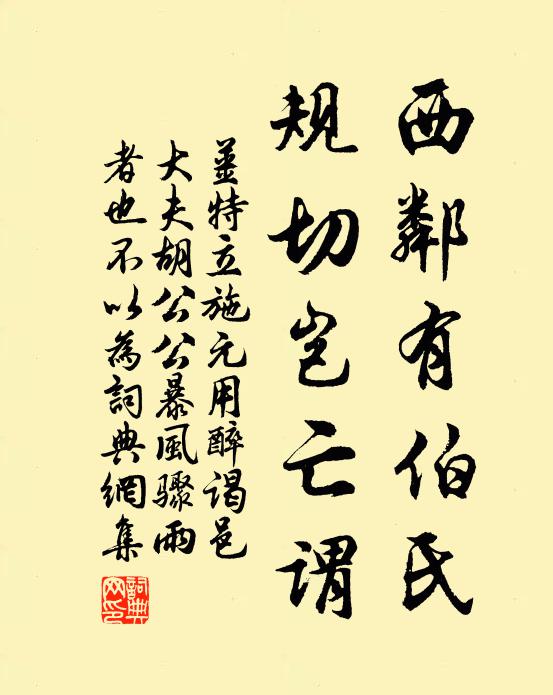 西鄰有伯氏
規切豈亡謂
姜特立施元用醉謁邑
大夫胡公公暴風驟雨
者也不以為詞典網集
詞典網印